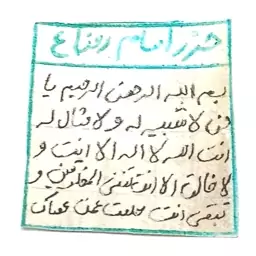 حرز امام رضا ع
بسم الله الرحمن الرحيم يا
من لا شبيه له ولا مثال له
انت الله لا اله الا انت و
لا خالق الا انت تفنى المخلوقين و
تبقى انت حلمت عمن عصاك